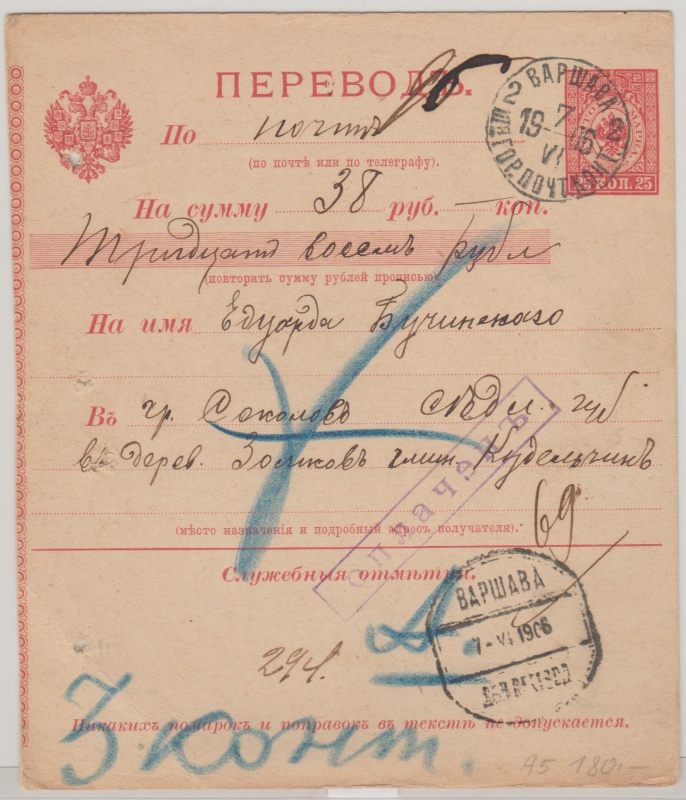 ПЕРЕВОДЪ.
ВАРШАВА 2
19 7 VI 06
ГОР. ПОЧТ.
КОП. 25
По почтѣ
(по почтѣ или по телеграфу).
На сумму 38 руб. — коп.
Тридцать восемь рубл
(повторить сумму рублей прописью)
На имя Едуарда Бучинскаго
Въ гр. Соколовъ Сѣдл. губ
въ дерев. гмин. Кудельчинъ
(мѣсто назначенія и подробный адресъ получателя).
оплаченъ
69
Служебныя отмѣтки.
ВАРШАВА
7-VI 1906
294.
Никакихъ помарокъ и поправокъ въ текстѣ не допускается.
3 конт.
A5 180.-